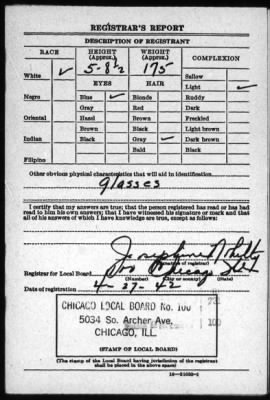 REGISTRAR'S REPORT
DESCRIPTION OF REGISTRANT
RACE HEIGHT (Approx.) WEIGHT (Approx.) COMPLEXION
5-8½ 175
White ✓ EYES HAIR Sallow
Light ✓
Negro Blue ✓ Blonde Ruddy
Gray Red Dark
Oriental Hazel Brown Freckled
Brown Black Light brown
Indian Black Gray ✓ Dark brown
Bald Black
Filipino
Other obvious physical characteristics that will aid in identification
Glasses
I certify that my answers are true; that the person registered has read or has had read to him his own answers; that I have witnessed his signature or mark and that all of his answers of which I have knowledge are true, except as follows:
Josephine
(Signature of registrar)
Registrar for Local Board 100 Chicago Ill
(Number) (City or county) (State)
Date of registration 4-27-42
CHICAGO LOCAL BOARD No. 100
5034 So. Archer Ave.
CHICAGO, ILL.
(STAMP OF LOCAL BOARD)
(The stamp of the Local Board having jurisdiction of the registrant shall be placed in the above space)